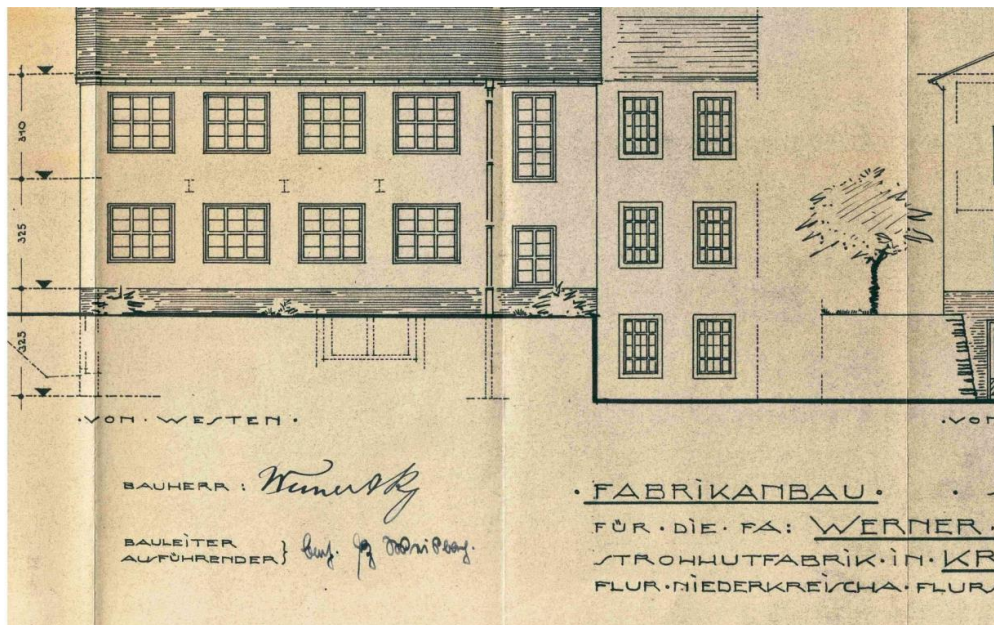 310
325
325
·VON·WESTEN·
·VON
BAUHERR:
BAULEITER
AUSFÜHRENDER}
·FABRIKANBAU·
FÜR·DIE·FA: WERNER·
STROHHUTFABRIK·IN·KR
FLUR·NIEDERKREISCHA·FLURS